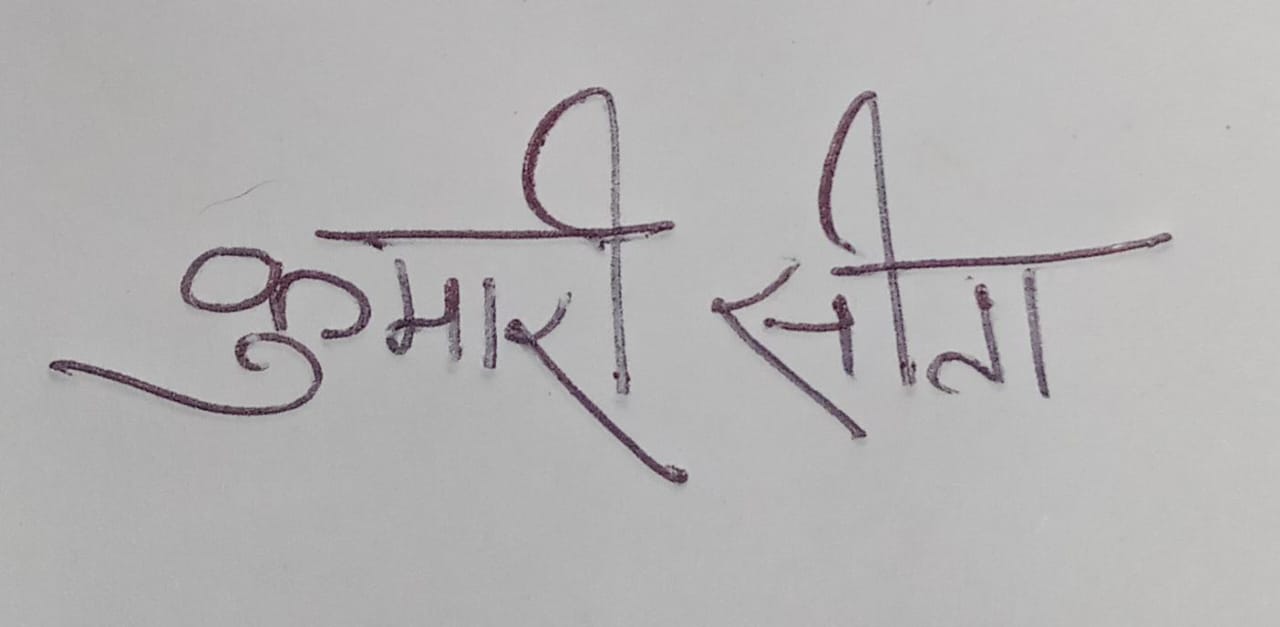 कुमारी सीता